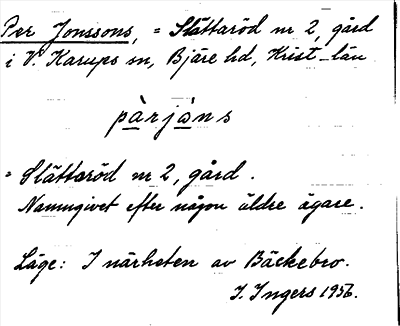 Per Jonssons, = Slättaröd nr 2, gård
i V. Karups sn, Bjäre hd, Krist. län
pàrjàns
= Slättaröd nr 2, gård.
Namngivet efter någon äldre ägare.
Läge: I närheten av Bäckebro.
I. Ingers 1956.